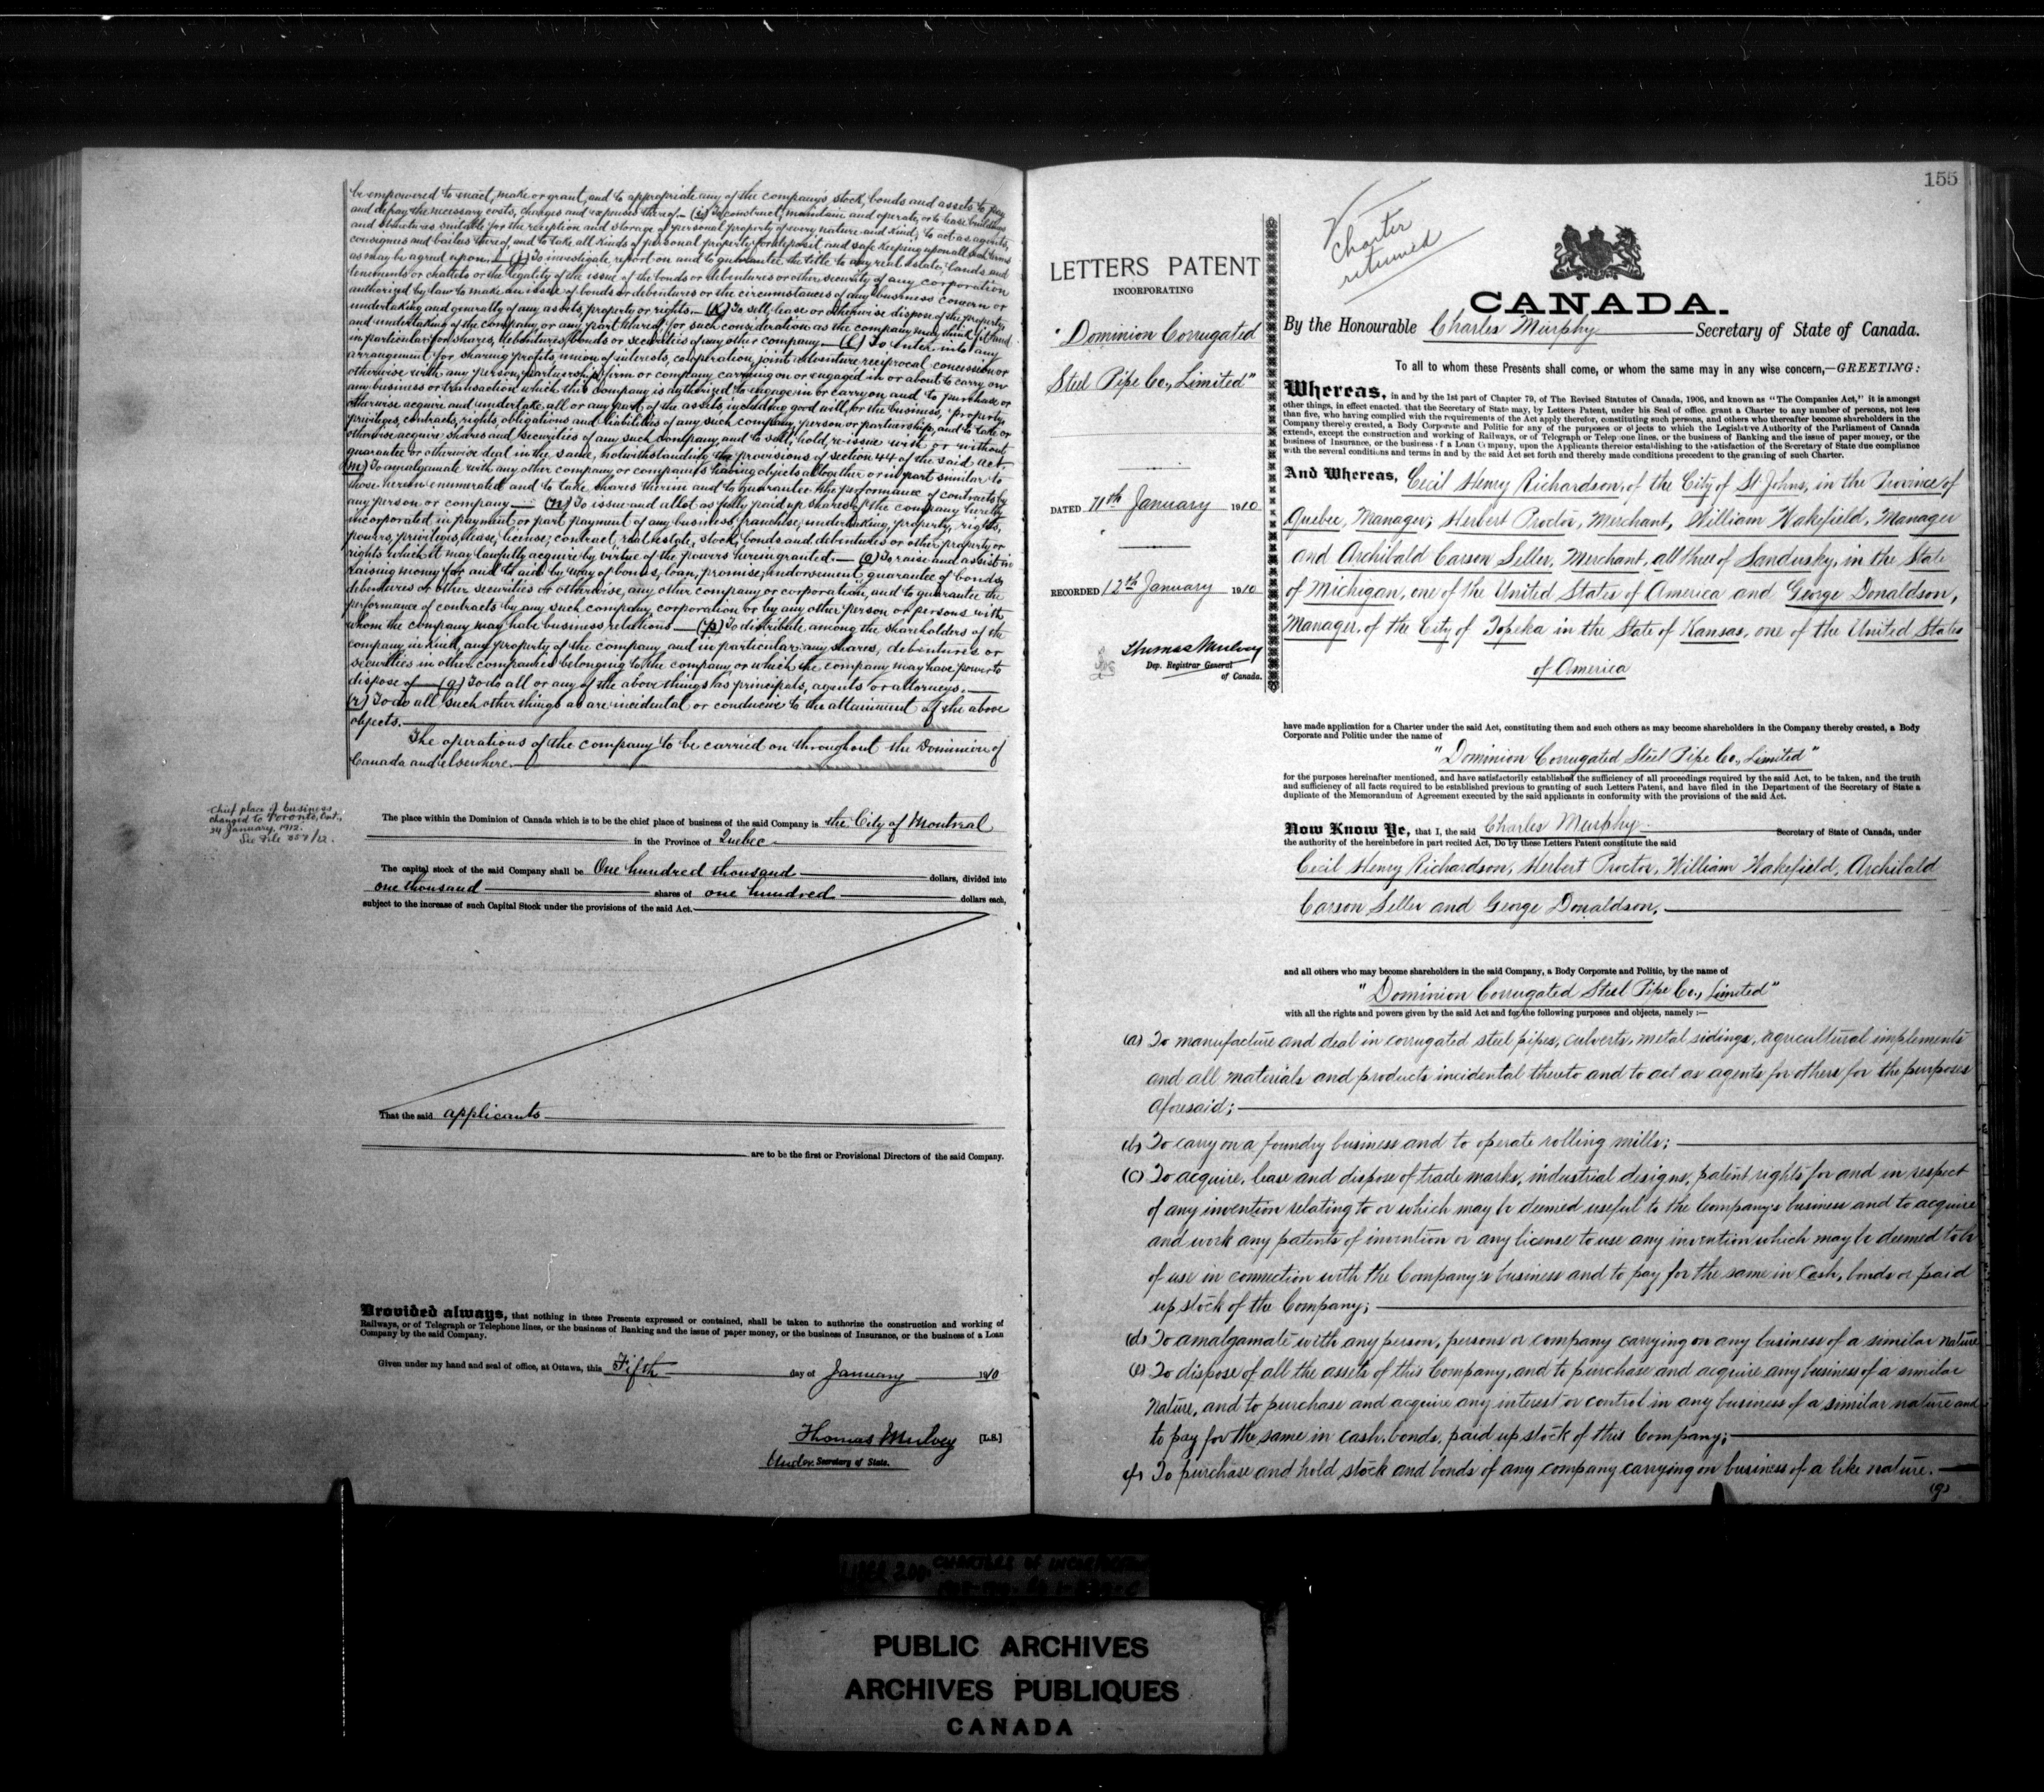 be empowered to enact, make or grant, and to appropriate any of the company's stock, bonds and assets to pay
and defray the necessary costs, charges and expenses thereof. — (i) To construct, maintain and operate, or to lease buildings
and structures suitable for the reception and storage of personal property of every nature and kind; to act as agents,
consignees and bailees thereof and to take all kinds of personal property for deposit and safe keeping upon all such terms
as may be agreed upon. — (j) To investigate, report on and to guarantee the title to any real estate, lands and
tenements or chattels or the legality of the issue of the bonds or debentures or other security of any corporation
authorized by law to make an issue of bonds or debentures or the circumstances of any business concern or
undertaking and generally of any assets, property or rights. — (k) To sell, lease or otherwise dispose of the property
and undertaking of the company, or any part thereof, for such consideration as the company may think fit and
in particular for shares, debentures, bonds or securities of any other company. — (l) To enter into any
arrangement for sharing profits, union of interests, cooperation, joint adventure reciprocal concession or
otherwise with any person, partnership, firm or company carrying on or engaged in or about to carry on
any business or transaction which this company is authorized to engage in or carry on and to purchase or
otherwise acquire and undertake all or any part of the assets, including good will, or the business, property,
privileges, contracts, rights, obligations and liabilities of any such company, person or partnership, and to take or
otherwise acquire shares and securities of any such company, and to sell, hold, re-issue with or without
guarantee or otherwise deal in the same, notwithstanding the provisions of section 44 of the said Act.
(m) To amalgamate with any other company or companies having objects altogether or in part similar to
those herein enumerated and to take shares therein and to guarantee the performance of contracts by
any person or company — (n) To issue and allot as fully paid up shares of the company hereby
incorporated in payment or part payment of any business, franchise, undertaking, property, rights,
powers, privileges, lease, license, contract, real estate, stock, bonds and debentures or other property or
rights which it may lawfully acquire by virtue of the powers herein granted. — (o) To raise and assist in
raising money for and to aid by way of bonus, loan, promise, endorsement, guarantee of bonds,
debentures or other securities or otherwise, any other company or corporation, and to guarantee the
performance of contracts by any such company, corporation or by any other person or persons with
whom the company may have business relations — (p) To distribute among the shareholders of the
company in kind, any property of the company and in particular any shares, debentures or
securities in other companies belonging to the company or which the company may have power to
dispose of — (q) To do all or any of the above things as principals, agents or attorneys. —
(r) To do all such other things as are incidental or conducive to the attainment of the above
objects.
The operations of the company to be carried on throughout the Dominion of
Canada and elsewhere.
Chief place of business
changed to Toronto, Ont.,
24 January, 1912.
See File 257/12.
The place within the Dominion of Canada which is to be the chief place of business of the said Company is the City of Montreal
in the Province of Quebec
The capital stock of the said Company shall be One hundred thousand dollars, divided into
one thousand shares of one hundred dollars each,
subject to the increase of such Capital Stock under the provisions of the said Act.
That the said applicants
are to be the first or Provisional Directors of the said Company.
Provided always, that nothing in these Presents expressed or contained, shall be taken to authorize the construction and working of
Railways, or of Telegraph or Telephone lines, or the business of Banking and the issue of paper money, or the business of Insurance, or the business of a Loan
Company by the said Company.
Given under my hand and seal of office, at Ottawa, this Fifth day of January 1910
Thomas Mulvey [L.S.]
Under Secretary of State.
155
Charter
returned
LETTERS PATENT
INCORPORATING
"Dominion Corrugated
Steel Pipe Co., Limited"
DATED 11th January 1910
RECORDED 12th January 1910
Thomas Mulvey
Dep. Registrar General
of Canada.
CANADA.
By the Honourable Charles Murphy Secretary of State of Canada.
To all to whom these Presents shall come, or whom the same may in any wise concern,—GREETING:
Whereas, in and by the 1st part of Chapter 79, of The Revised Statutes of Canada, 1906, and known as "The Companies Act," it is amongst
other things, in effect enacted, that the Secretary of State may, by Letters Patent, under his Seal of office, grant a Charter to any number of persons, not less
than five, who having complied with the requirements of the Act apply therefor, constituting such persons, and others who thereafter become shareholders in the
Company thereby created, a Body Corporate and Politic for any of the purposes or objects to which the Legislative Authority of the Parliament of Canada
extends, except the construction and working of Railways, or of Telegraph or Telephone lines, or the business of Banking and the issue of paper money, or the
business of Insurance, or the business of a Loan Company, upon the Applicants therefor establishing to the satisfaction of the Secretary of State due compliance
with the several conditions and terms in and by the said Act set forth and thereby made conditions precedent to the granting of such Charter.
And Whereas, Cecil Henry Richardson, of the City of St. Johns, in the Province of
Quebec, Manager; Herbert Proctor, Merchant, William Wakefield, Manager
and Archibald Carson Seller, Merchant, all three of Sandusky, in the State
of Michigan, one of the United States of America and George Donaldson,
Manager, of the City of Topeka in the State of Kansas, one of the United States
of America
have made application for a Charter under the said Act, constituting them and such others as may become shareholders in the Company thereby created, a Body
Corporate and Politic under the name of
"Dominion Corrugated Steel Pipe Co., Limited"
for the purposes hereinafter mentioned, and have satisfactorily established the sufficiency of all proceedings required by the said Act, to be taken, and the truth
and sufficiency of all facts required to be established previous to granting of such Letters Patent, and have filed in the Department of the Secretary of State a
duplicate of the Memorandum of Agreement executed by the said applicants in conformity with the provisions of the said Act.
Now Know Ye, that I, the said Charles Murphy Secretary of State of Canada, under
the authority of the hereinbefore in part recited Act, Do by these Letters Patent constitute the said
Cecil Henry Richardson, Herbert Proctor, William Wakefield, Archibald
Carson Seller and George Donaldson,
and all others who may become shareholders in the said Company, a Body Corporate and Politic, by the name of
"Dominion Corrugated Steel Pipe Co., Limited"
with all the rights and powers given by the said Act and for the following purposes and objects, namely :—
(a) To manufacture and deal in corrugated steel pipes, culverts, metal sidings, agricultural implements
and all materials and products incidental thereto and to act as agents for others for the purposes
aforesaid;
(b) To carry on a foundry business and to operate rolling mills;
(c) To acquire, lease and dispose of trade marks, industrial designs, patent rights for and in respect
of any invention relating to or which may be deemed useful to the Company's business and to acquire
and work any patents of invention or any license to use any invention which may be deemed to be
of use in connection with the Company's business and to pay for the same in cash, bonds or paid
up stock of the Company;
(d) To amalgamate with any person, persons or company carrying on any business of a similar nature
(e) To dispose of all the assets of this Company, and to purchase and acquire any business of a similar
nature, and to purchase and acquire any interest or control in any business of a similar nature and
to pay for the same in cash, bonds, paid up stock of this Company;
(f) To purchase and hold stock and bonds of any company carrying on business of a like nature.
(g)
PUBLIC ARCHIVES
ARCHIVES PUBLIQUES
CANADA